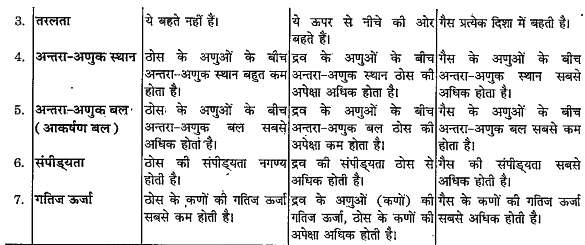 3. तरलता ये बहते नहीं है। ये ऊपर से नीचे की ओर गैस प्रत्येक दिशा में बहती है।
बहते है।
4. अन्तरा-अणुक स्थान ठोस के अणुओं के बीच द्रव के अणुओं के बीच गैस के अणुओं के बीच
अन्तरा-अणुक स्थान बहुत कम अन्तरा-अणुक स्थान ठोस की अन्तरा-अणुक स्थान सबसे
होता है। अपेक्षा अधिक होता है। अधिक होता है।
5. अन्तरा-अणुक बल ठोस के अणुओं के बीच द्रव के अणुओं के बीच गैस के अणुओं के बीच
(आकर्षण बल) अन्तरा-अणुक बल सबसे अन्तरा-अणुक बल ठोस की अन्तरा-अणुक बल सबसे कम
अधिक होता है। अपेक्षा कम होता है। होता है।
6. संपीड्यता ठोस की संपीड्यता नगण्य द्रव की संपीड्यता ठोस से गैस की संपीड्यता सबसे
होती है। अधिक होती है। अधिक होती है।
7. गतिज ऊर्जा ठोस के कणों की गतिज ऊर्जा द्रव के अणुओं (कणों) की गैस के कणों की गतिज ऊर्जा
सबसे कम होती है। गतिज ऊर्जा, ठोस के कणों की सबसे अधिक होती है।
अपेक्षा अधिक होती है।